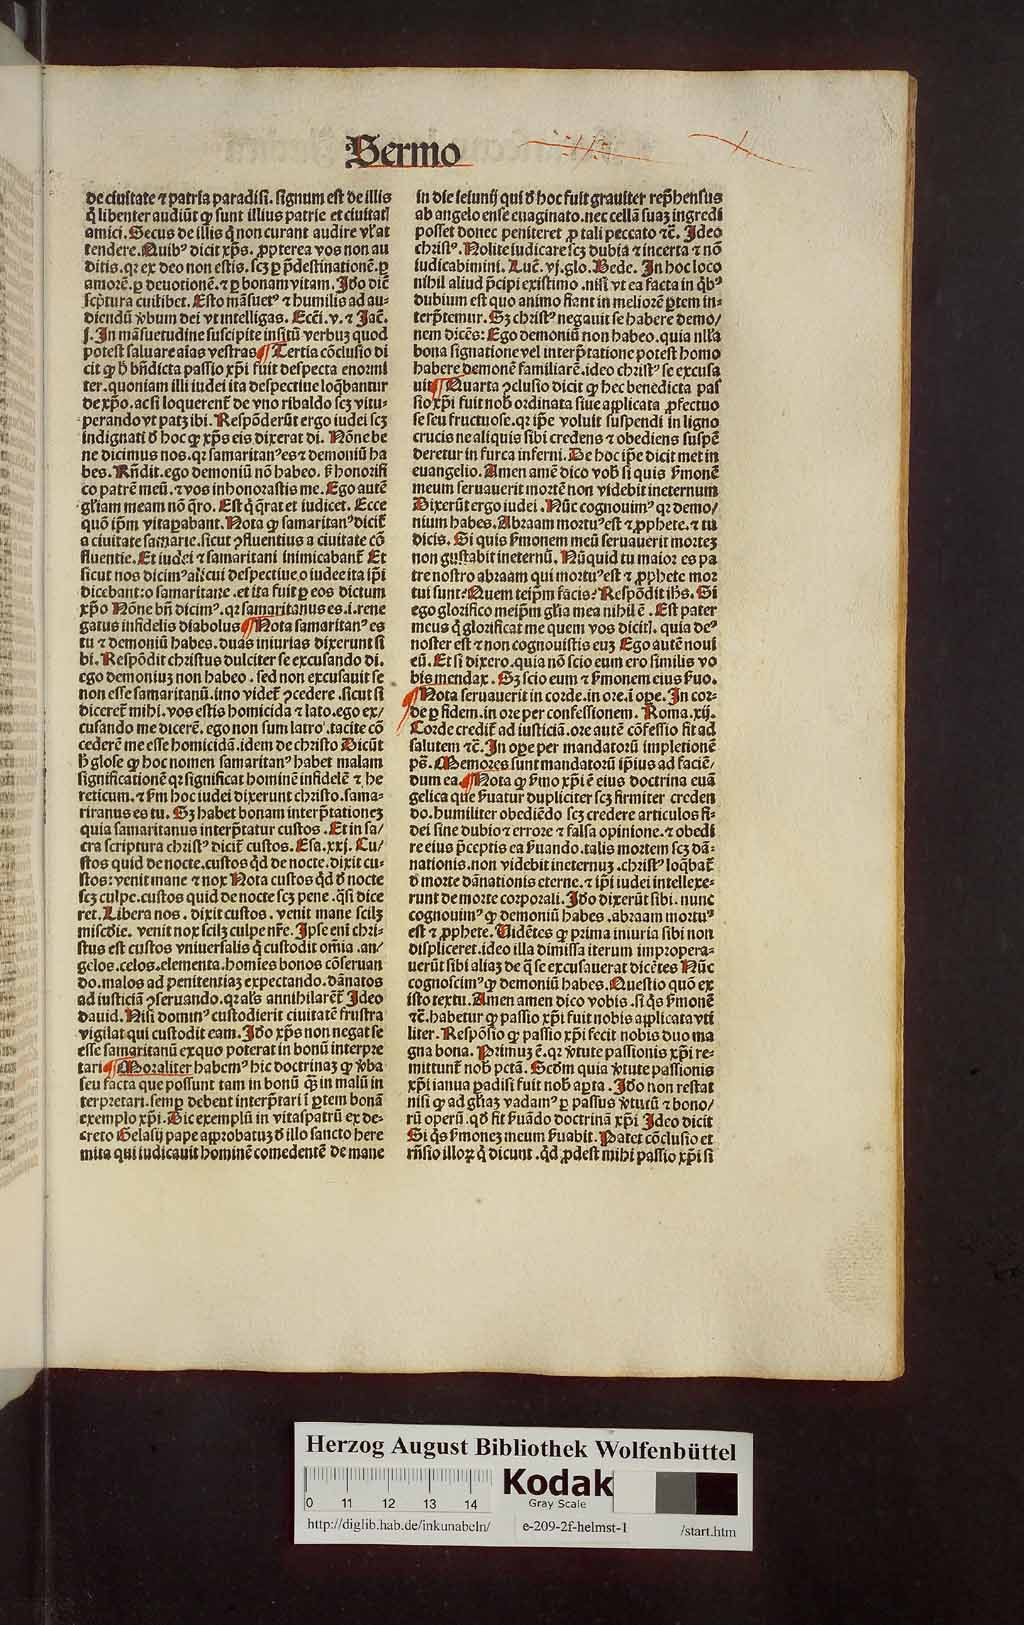 Sermo
de ciuitate ⁊ patria paradisi. signum est de illis
q̄ libenter audiūt ꝙ sunt illius patrie et ciuitatꝭ
amici. Secus de illis q̄ non curant audire vl̓ at
tendere. Quibꝰ dicit xp̄s. ꝓpterea vos non au
ditis. qꝛ ex deo non estis. scꝫ ꝑ p̄destinationē. ꝑ
amorē. ꝑ deuotionē. ⁊ ꝑ bonam vitam. Iđo dic̄
scp̄tura cuilibet. Esto māsuetꝰ ⁊ humilis ad au-
diendū ꝟbum dei vt intelligas. Ecci. v. ⁊ Jac̄.
j. In māsuetudine suscipite insitū verbuꝫ quod
potest saluare aīas vestras ¶ Tertia cōclusio di
cit ꝙ ħ bn̄dicta passio xp̄i fuit despecta enormi
ter. quoniam illi iudei ita despectiue loq̄bantur
de xp̄o. ac si loquerent̄ de vno ribaldo scꝫ vitu-
perando vt patꝫ ibi. Respōderūt ergo iudei scꝫ
indignati đ hoc ꝙ xp̄s eis dixerat di. Nōne be
ne dicimus nos. qꝛ samaritanꝰ es ⁊ demoniū ha
bes. Rn̄dit. ego demoniū nō habeo. ꝭ honorifi
co patrē meū. ⁊ vos inhonorastis me. Ego autē
gl̓iam meam nō q̄ro. Est q̄ q̄rat et iudicet. Ecce
quō ip̄m vitaꝑabant. Nota ꝙ samaritanꝰ dicit̄
a ciuitate samarie. sicut ꝯfluentius a ciuitate cō
fluentie. Et iudei ⁊ samaritani inimicabant̄ Et
sicut nos dicimꝰ alicui despectiue. o iudee ita ip̄i
dicebant: o samaritane. et ita fuit ꝑ eos dictum
xp̄o Nōne bn̄ dicimꝰ. qꝛ samaritanus es. i. rene
gatus infidelis diabolus ¶ Nota samaritanꝰ es
tu ⁊ demoniū habes. duas iniurias dixerunt si
bi. Respōdit christus dulciter se excusando di.
ego demoniuꝫ non habeo. sed non excusauit se
non esse samaritanū. imo videt̄ ꝯcedere. sicut si
diceret̄ mihi. vos estis homicida ⁊ lato. ego ex/
cusando me dicerē. ego non sum latro. tacite cō
cederē me esse homicidā. idem de christo Dicūt
ħ glose ꝙ hoc nomen samaritanꝰ habet malam
significationē qꝛ significat hominē infidelē ⁊ he
reticum. ⁊ ẜm hoc iudei dixerunt christo. sama-
ritanus es tu. Sꝫ habet bonam interp̄tationeꝫ
quia samaritanus interp̄tatur custos. Et in sa/
cra scriptura christꝰ dicit̄ custos. Esa. xxj. Cu/
stos quid de nocte. custos q̄d de nocte. dixit cu-
stos: venit mane ⁊ nox Nota custos q̄d đ nocte
scꝫ culpe. custos quid de nocte scꝫ pene. q̄si dice
ret. Libera nos. dixit custos. venit mane scilꝫ
miscđie. venit nox scilꝫ culpe nr̄e. Ipse eni chri-
stus est custos vniuersalis q̄ custodit om̄ia. an/
gelos. celos. elementa. homies bonos cōseruan
do. malos ad penitentiaꝫ expectando. dānatos
ad iusticiā ꝯseruando. qꝛ al̓s annihilarēt̄ Ideo
dauid. Nisi dominꝰ custodierit ciuitatē frustra
vigilat qui custodit eam. Iđo xp̄s non negat se
esse samaritanū ex quo poterat in bonū interpre
tari ¶ Moraliter habemꝰ hic doctrinaꝫ ꝙ ꝟba
seu facta que possunt tam in bonū q̄ꝫ in malū in
terpretari. semꝑ debent interp̄tari ī ꝑtem bonā
exemplo xp̄i. Dic exemplū in vitaspatrū ex de-
creto Gelasij pape approbatuꝫ đ illo sancto here
mita qui iudicauit hominē comedentē de mane
in die ieiunij qui đ hoc fuit grauiter rep̄hensus
ab angelo ense euaginato. nec cellā suaꝫ ingredi
posset donec peniteret ꝓ tali peccato ⁊c̄. Ideo
christꝰ. Nolite iudicare scꝫ dubia ⁊ incerta ⁊ nō
iudicabimini. Luc̄. vj. glo. Bede. In hoc loco
nihil aliud p̄cipi existimo. nisi vt ea facta in q̄bꝰ
dubium est quo animo fiant in meliorē ꝑtem in-
terp̄temur. Sꝫ christꝰ negauit se habere demo/
nem dicēs: Ego demoniū non habeo. quia nll̓a
bona signatione vel interp̄tatione potest homo
habere demonē familiarē. ideo christꝰ se excusa
uit ¶ Quarta ꝯclusio dicit ꝙ hec benedicta pas
sio xp̄i fuit nob̓ ordinata siue applicata ꝓfectuo
se seu fructuose. qꝛ ip̄e voluit suspendi in ligno
crucis ne aliquis sibi credens ⁊ obediens suspē
deretur in furca inferni. De hoc ip̄e dicit met in
euangelio. Amen amē dico vob̓ si quis ẜmonē
meum seruauerit mortē non videbit ineternum
Dixerūt ergo iudei. Nūc cognouimꝰ qꝛ demo/
nium habes. Abraam mortuꝰ est ⁊ ꝓphete. ⁊ tu
dicis. Si quis ẜmonem meū seruauerit morteꝫ
non gustabit ineternū. Nūquid tu maior es pa
tre nostro abraam qui mortuꝰ est ⁊ ꝓphete mor
tui sunt? Quem teip̄m facis? Respōdit ih̄s. Si
ego glorifico meip̄m gl̓ia mea nihil ē. Est pater
meus q̄ glorificat me quem vos dicitꝭ. quia deꝰ
noster est ⁊ non cognouistis euꝫ Ego autē noui
eū. Et si dixero. quia nō scio eum ero similis vo
bis mendax. Sꝫ scio eum ⁊ ẜmonem eius ẜuo.
¶ Nota seruauerit in corde. in ore. ī oꝑe. In cor-
de ꝑ fidem. in ore per confessionem. Roma. xij.
Corde credit̄ ad iusticiā. ore autē cōfessio fit ad
salutem ⁊c̄. In oꝑe per mandatorū impletionē
ps̄. Memores sunt mandatorū ip̄ius ad faciē/
dum ea. ¶ Nota ꝙ ẜmo xp̄i ē eius doctrina euā
gelica que ẜuatur dupliciter scꝫ firmiter creden
do. humiliter obediēdo scꝫ credere articulos fi-
dei sine dubio ⁊ errore ⁊ falsa opinione. ⁊ obedi
re eius p̄ceptis ea ẜuando. talis mortem scꝫ dā-
nationis. non videbit ineternuꝫ. christꝰ loq̄bat̄
đ morte dānationis eterne. ⁊ ip̄i iudei intellexe-
runt de morte corporali. Iđo dixerūt sibi. nunc
cognouimꝰ ꝙ demoniū habes. abraam mortuꝰ
est ⁊ ꝓphete. Vidētes ꝙ prima iniuria sibi non
displiceret. ideo illa dimissa iterum impropera-
uerūt sibi aliaꝫ de q̄ se excusauerat dicētes Nūc
cognoscimꝰ ꝙ demoniū habes. Questio quō ex
isto textu. Amen amen dico vobis. si q̄s ẜmonē
⁊c̄. habetur ꝙ passio xp̄i fuit nobis applicata vti
liter. Respōsio ꝙ passio xp̄i fecit nobis duo ma
gna bona. Primuꝫ ē. qꝛ ꝟtute passionis xp̄i re-
mittunt̄ nob̓ pctā. Scđm quia ꝟtute passionis
xp̄i ianua ꝑadisi fuit nob̓ aꝑta. Iđo non restat
nisi ꝙ ad gl̓iaꝫ vadamꝰ ꝑ passus ꝟtutū ⁊ bono/
rū operū. qđ fit ẜuādo doctrinā xp̄i Ideo dicit
Si q̄s ẜmoneꝫ meum ẜuabit. Patet cōclusio et
rn̄sio illoꝝ q̄ dicunt. q̄d ꝓdest mihi passio xp̄i si
Herzog August Bibliothek Wolfenbüttel
Kodak
Gray Scale
0 11 12 13 14
http://diglib.hab.de/inkunabeln/ e-209-2f-helmst-1 /start.htm